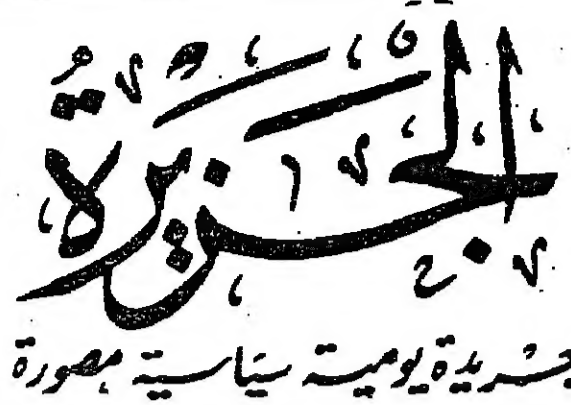 الجزيرة
جريدة يومية سياسية مصورة